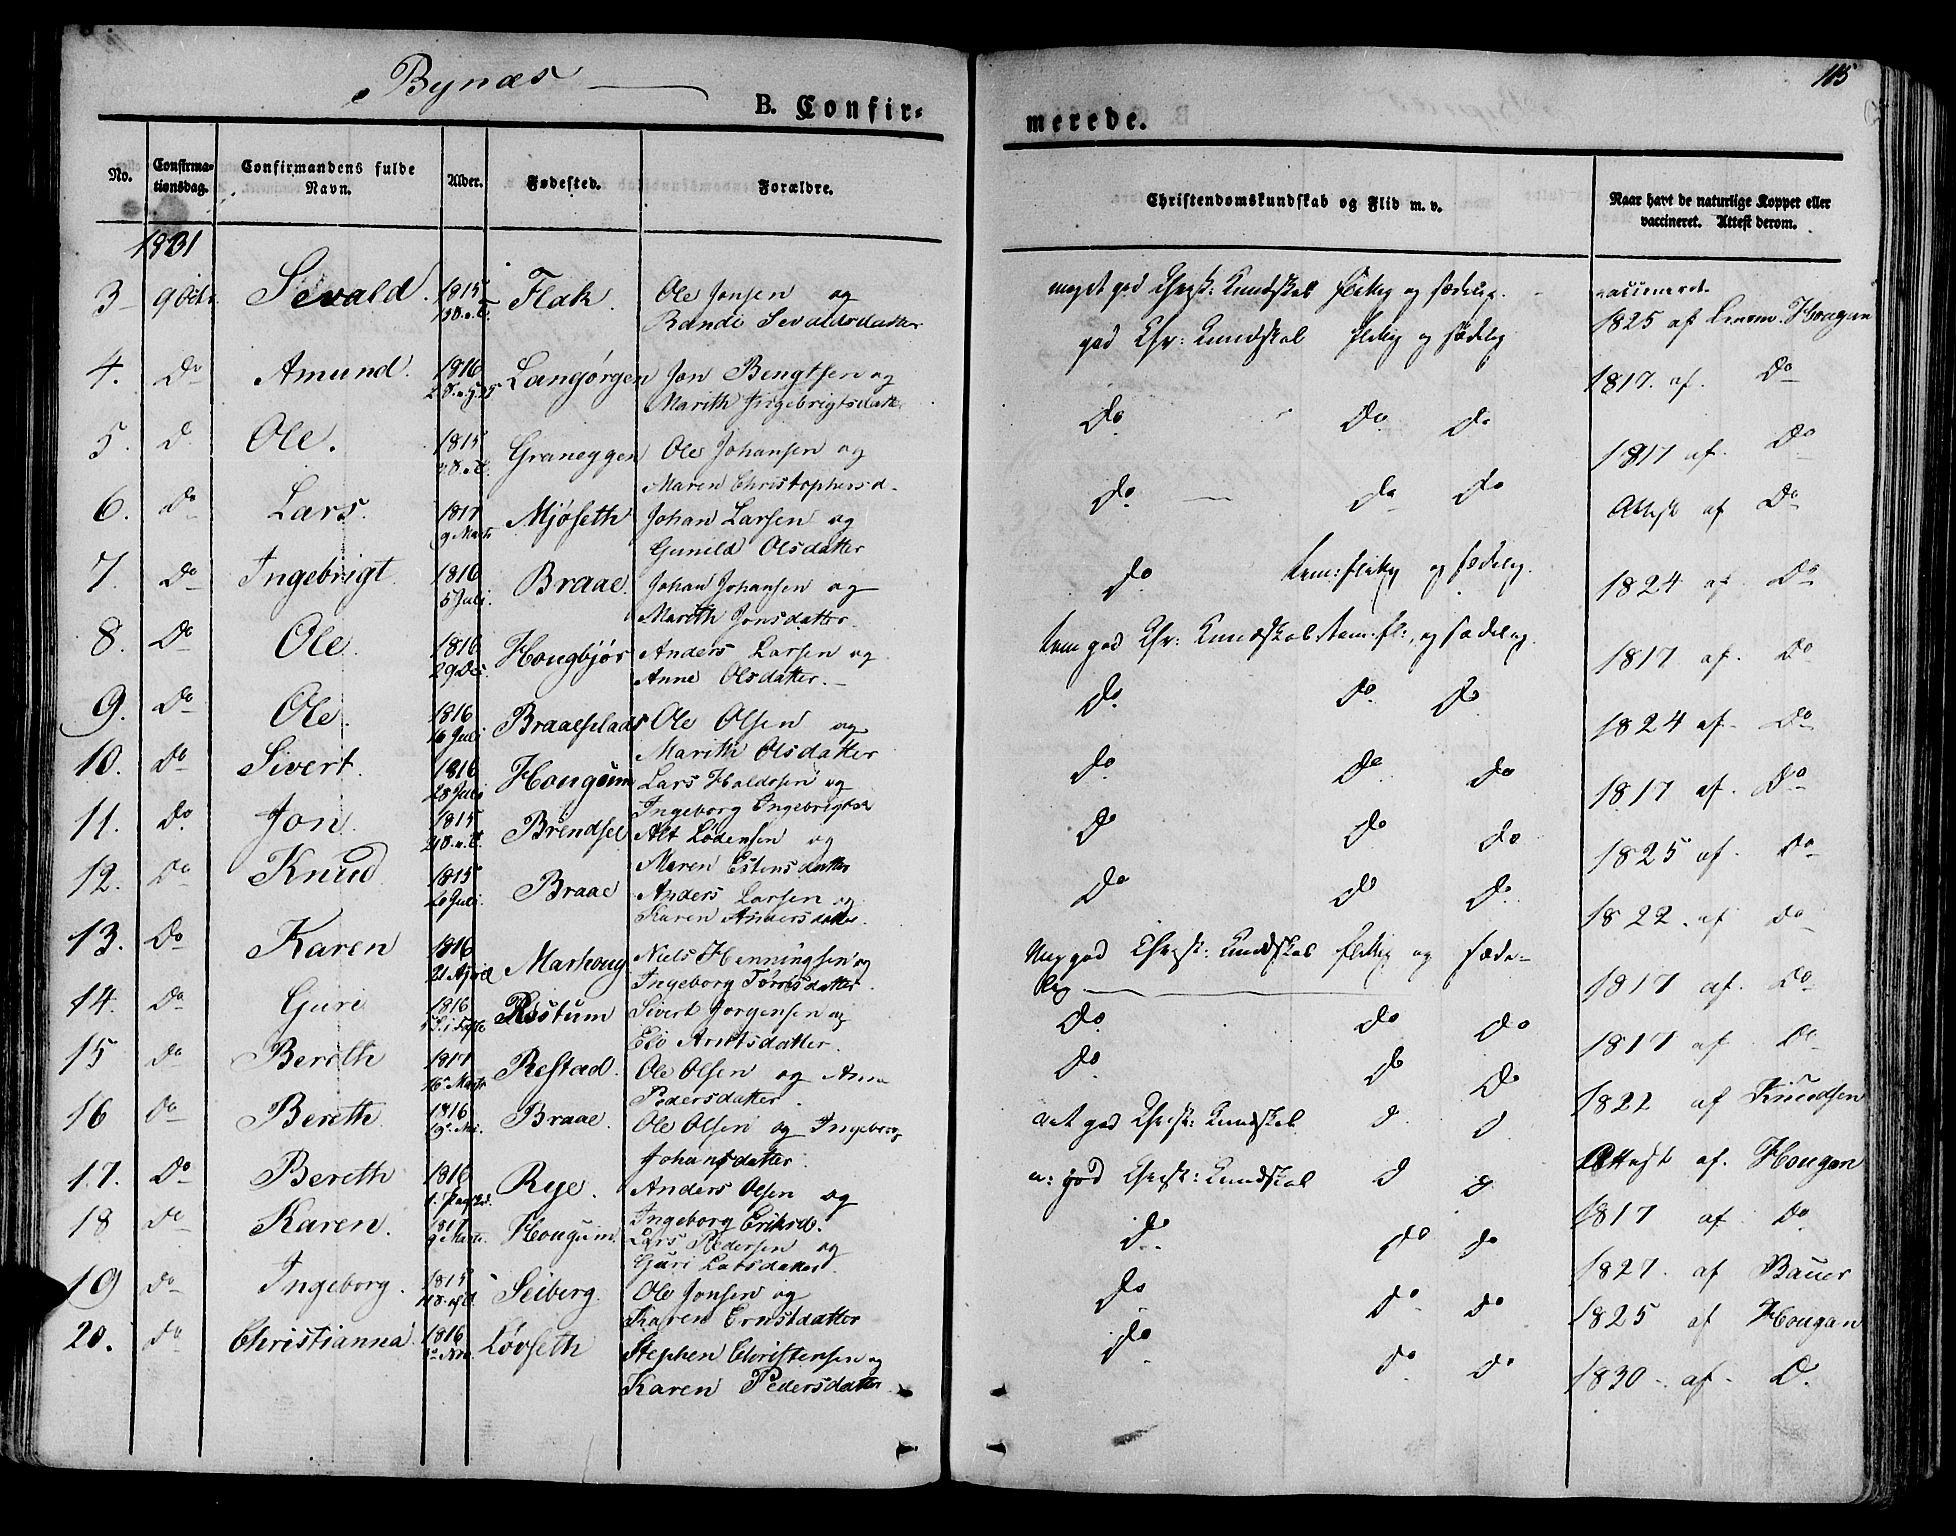 Bynæs
115
B. Confir-
merede.
No.
Confirma-
tionsdag.
Confirmandens fulde
Navn.
Alder.
Fødested.
Forældre.
Christendomskundskab og Flid m. v.
Naar havt de naturlige Kopper eller
vaccineret. Attest derom.
1831
3 9 Octr Sevald. 1815 Flak Ole Jonsen og
Randi Sevaldsdatter
meget god Christ: Kundskab flittig og sædelig.
vaccineret
1825 af Hougan
4. Do Amund. 1816 Langørgen Jon Bengtsen og
Marith Ingebrigtsdatter
god Chr: Kundskab flittig og sædelig
1817 af Do
5. D Ole. 1815 Graneggen Ole Johansen og
Maren Christophersd.
Do Do Do
1817 af Do
6. Do Lars. 1817 9 Marts Mjøseth Johan Larsen og
Gunild Olsdatter
Do Do Do
Attest af Do
7. Do Ingebrigt 1816 5 Juli Braae. Johan Johansen og
Marith Jonsdatter.
Do tem: flittig og sædelig.
1824 af Do
8. Do Ole. 1816 29 Dec Hougbjør Anders Larsen og
Anne Olsdatter.
tem god Chr: Kundskab tem: fl:, og sædelig.
1817 af Do
9. Do Ole. 1816 16 Juli Braaesplads Ole Olsen og
Marith Olsdatter
Do Do Do
1824 af Do
10. Do Sivert. 1816 28 Juli Hougum Lars Haldosen og
Ingeborg Ingebrigtsd
Do Do Do
1817 af Do
11. Do Jon 1815 Brendsel Alt Lodensen og
Maren Estensdatter
Do Do Do
1825 af Do
12. Do Knud 1815 20 Juli Braae Anders Larsen og
Karen Andersdatter.
Do Do Do
1822. af Do
13. Do Karen 1816 21 April Marhoug Niels Henningsen og
Ingeborg Tørrisdatter.
god Christ: Kundskab flittig og sæde-
lig.
1817 af Do
14. Do Guri 1816 Rostum Sivert Jørgensen og
Arntsdatter.
Do Do Do
1817 af Do
15 Do Bereth 1817 Restad. Ole Olsen og Anne
Pedersdatter.
Do Do Do
1822 af Knudsen
16 Do Bereth 1816 Braae. Ole Olsen og Ingeborg
Johansdatter.
god Christ: Kundskab D D
Attest af Hougan
17. Do Bereth 1816 Rye. Anders Olsen og
Ingeborg Eriksd.
god Christ: Kundskab D D
1817 af Do
18 Do Karen. 1817 9 Marts Hougum. Lars Pedersen og
Guri Larsdatter.
Do Do Do
1827. af Bauer
19 Do Ingeborg. 1815 Seiberg. Ole Jonsen og
Karen Ernstdatter
Do Do Do
1825 af Hougan
20. Do Christianna 1816 Løvseth Stephen Christensen og
Karen Pedersdatter
Do Do Do
1830 af D.